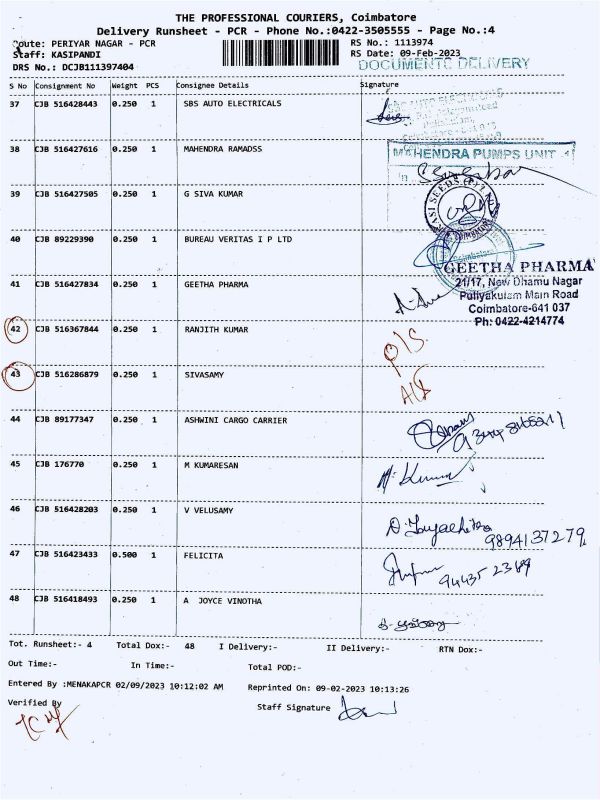 THE PROFESSIONAL COURIERS, Coimbatore
Delivery Runsheet - PCR - Phone No.:0422-3505555 - Page No.:4
Route: PERIYAR NAGAR - PCR
RS No.: 1113974
Staff: KASIPANDI
RS Date: 09-Feb-2023
DRS No.: DCJB111397404
DOCUMENTS DELIVERY
S No Consignment No Weight PCS Consignee Details Signature
37 CJB 516428443 0.250 1 SBS AUTO ELECTRICALS
SBS AUTO ELECTRICALS
38 CJB 516427616 0.250 1 MAHENDRA RAMADSS
MAHENDRA PUMPS UNIT 1
39 CJB 516427505 0.250 1 G SIVA KUMAR
40 CJB 89229390 0.250 1 BUREAU VERITAS I P LTD
41 CJB 516427834 0.250 1 GEETHA PHARMA
GEETHA PHARMA
21/17, New Dhamu Nagar
Puliyakulam Main Road
Coimbatore-641 037
Ph: 0422-4214774
42 CJB 516367844 0.250 1 RANJITH KUMAR
O/S.
43 CJB 516286879 0.250 1 SIVASAMY
44 CJB 89177347 0.250 1 ASHWINI CARGO CARRIER
45 CJB 176770 0.250 1 M KUMARESAN
M. Kumar
46 CJB 516428203 0.250 1 V VELUSAMY
9894137279
47 CJB 516423433 0.500 1 FELICITA
9443523
48 CJB 516418493 0.250 1 A JOYCE VINOTHA
Tot. Runsheet:- 4 Total Dox:- 48 I Delivery:- II Delivery:- RTN Dox:-
Out Time:- In Time:- Total POD:-
Entered By :MENAKAPCR 02/09/2023 10:12:02 AM Reprinted On: 09-02-2023 10:13:26
Verified By
Staff Signature